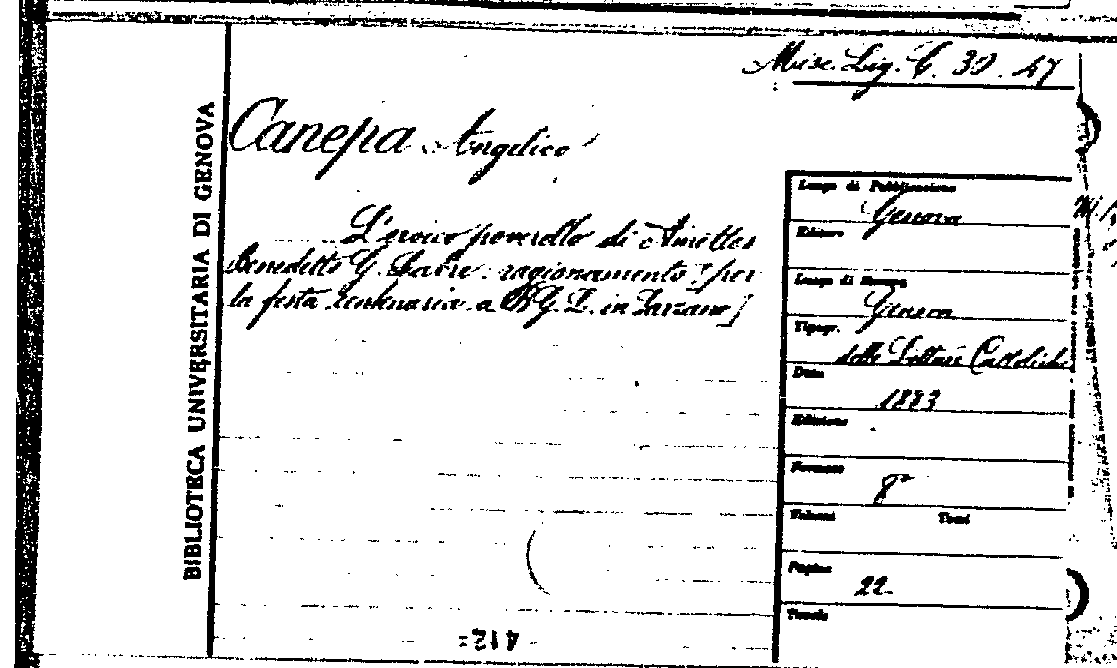 Misc. Lig. C. 30. 47
BIBLIOTECA UNIVERSITARIA DI GENOVA
Canepa Angelico
L'eroico poverello di Amettes
Benedetto G. Labre: ragionamento [per
la festa centenaria a B. G. L. in Sarzano]
Luogo di Pubblicazione
Genova
Editore
Luogo di Stampa
Genova
Tipogr.
delle Letture Cattoliche
Data
1883
Edizione
Formato
8°
Volumi Tomi
Pagine
22
Tavole
412=